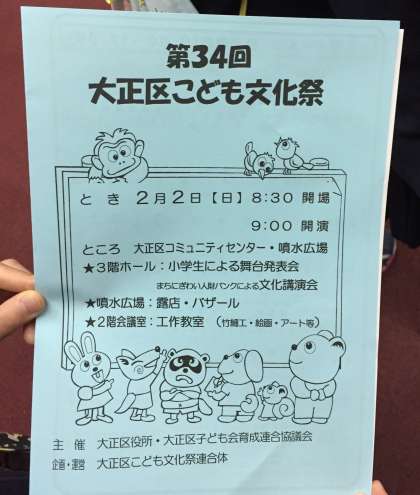 第34回
大正区こども文化祭
とき 2月2日【日】8:30 開場
9:00 開演
ところ 大正区コミュニティセンター・噴水広場
★3階ホール：小学生による舞台発表会
まちにぎわい人財バンクによる文化講演会
★噴水広場：露店・バザール
★2階会議室：工作教室 （竹細工・絵画・アート等）
主 催 大正区役所・大正区子ども会育成連合協議会
企画・運営 大正区こども文化祭連合体